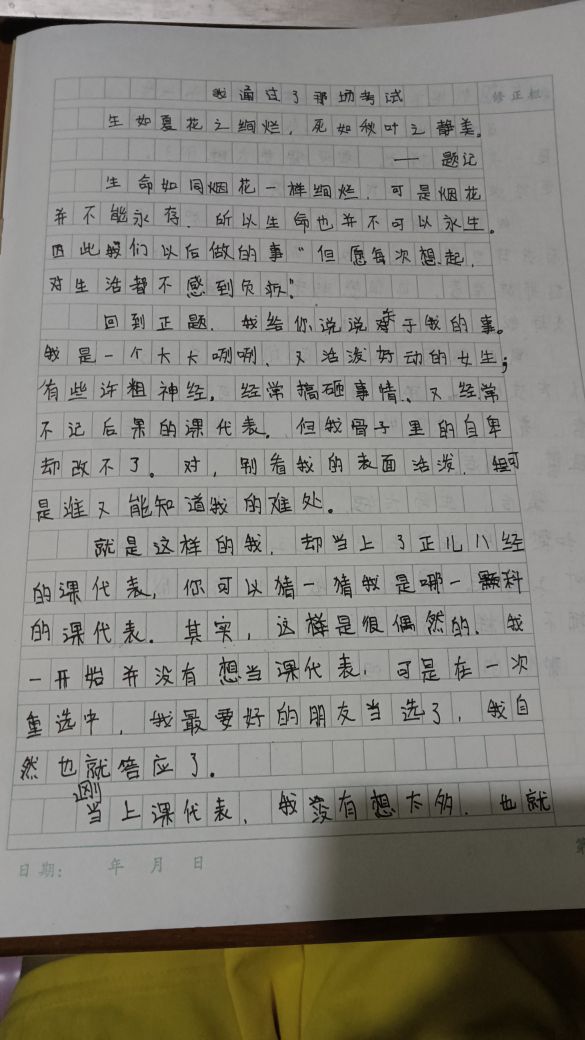 我通过了那场考试
修正栏
生如夏花之绚烂，死如秋叶之静美。
——题记
生命如同烟花一样绚烂，可是烟花
并不能永存，所以生命也并不可以永生。
因此我们以后做的事“但愿每次想起，
对生活都不感到负疚”。
回到正题，我给你说说关于我的事。
我是一个大大咧咧、又活泼好动的女生；
有些许粗神经，经常搞砸事情、又经常
不记后果的课代表。但我骨子里的自卑
却改不了。对，别看我的表面活泼，可
是谁又能知道我的难处。
就是这样的我，却当上了正儿八经
的课代表，你可以猜一猜我是哪一科
的课代表。其实，这样是很偶然的，我
一开始并没有想当课代表，可是在一次
重选中，我最要好的朋友当选了，我自
然也就答应了。
刚当上课代表，我没有想太多，也就
日期： 年 月 日
第